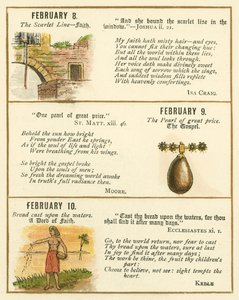 FEBRUARY 8.
The Scarlet Line—Faith.
"And she bound the scarlet line in the
window."—JOSHUA ii. 21.
My faith hath misty hair—and eyes,
You cannot fix their changing hue:
But all the world within them lies,
And all the soul looks through.
Her voice doth make divinely sweet
Each song of sorrow which she sings,
And saddest wisdom fills replete
With heavenly comfortings.
ISA CRAIG.
"One pearl of great price."
ST. MATT. xiii. 46.
Behold the sun how bright
From yonder East he springs,
As if the soul of life and light
Were breathing from his wings.
So bright the gospel broke
Upon the souls of men;
So fresh the dreaming world awoke
In truth's full radiance then.
MOORE.
FEBRUARY 9.
The Pearl of great price.
The Gospel.
FEBRUARY 10.
Bread cast upon the waters.
A Deed of Faith.
"Cast thy bread upon the waters, for thou
shalt find it after many days."
ECCLESIASTES xi. 1.
Go, to the world return, nor fear to cast
Thy bread upon the waters, sure at last
In joy to find it after many days;
The work be thine, the fruit thy children's
part:
Choose to believe, not see: sight tempts the
heart.
KEBLE